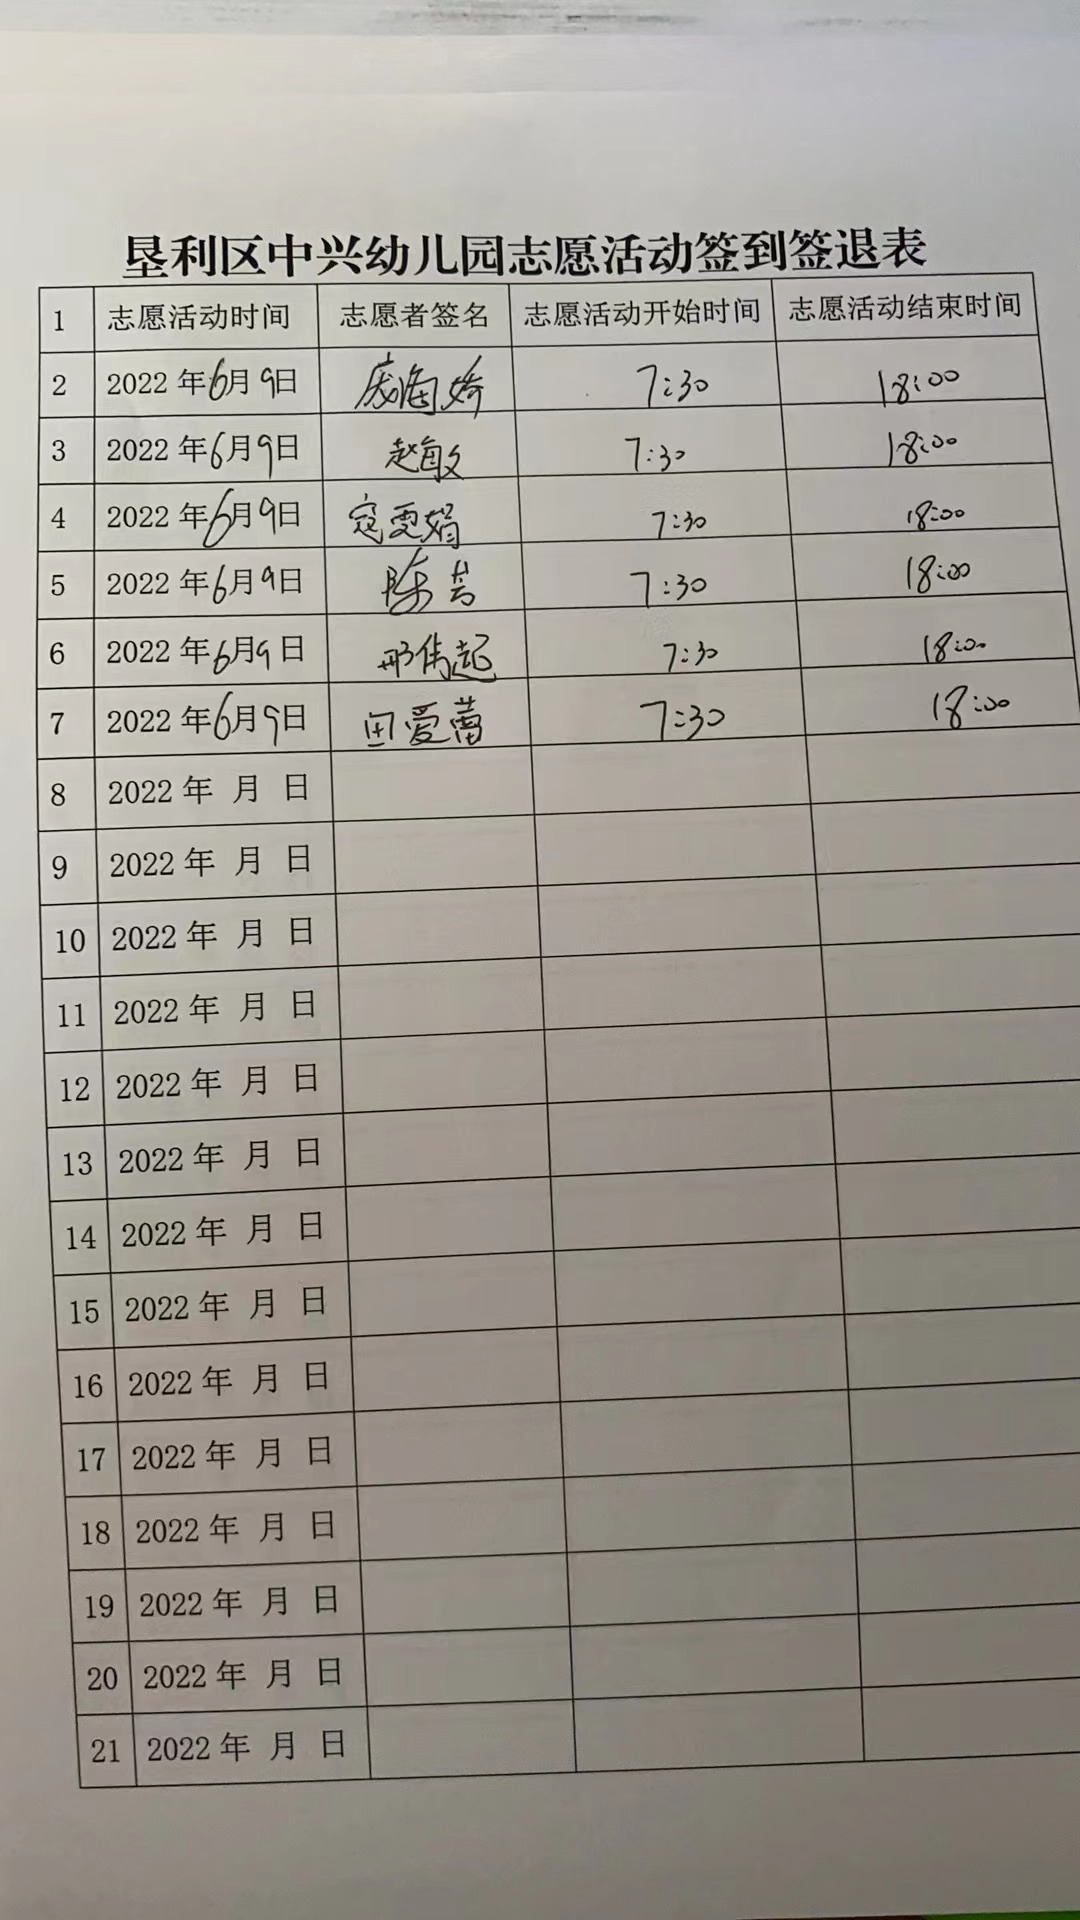 垦利区中兴幼儿园志愿活动签到签退表
1 志愿活动时间 志愿者签名 志愿活动开始时间 志愿活动结束时间
2 2022 年6月9日 7:30 18:00
3 2022 年6月9日 赵敏 7:30 18:00
4 2022 年6月9日 寇雯娟 7:30 18:00
5 2022 年6月9日 陈芸 7:30 18:00
6 2022 年6月9日 邢伟起 7:30 18:00
7 2022 年6月9日 田爱蕾 7:30 18:00
8 2022 年 月 日
9 2022 年 月 日
10 2022 年 月 日
11 2022 年 月 日
12 2022 年 月 日
13 2022 年 月 日
14 2022 年 月 日
15 2022 年 月 日
16 2022 年 月 日
17 2022 年 月 日
18 2022 年 月 日
19 2022 年 月 日
20 2022 年 月 日
21 2022 年 月 日